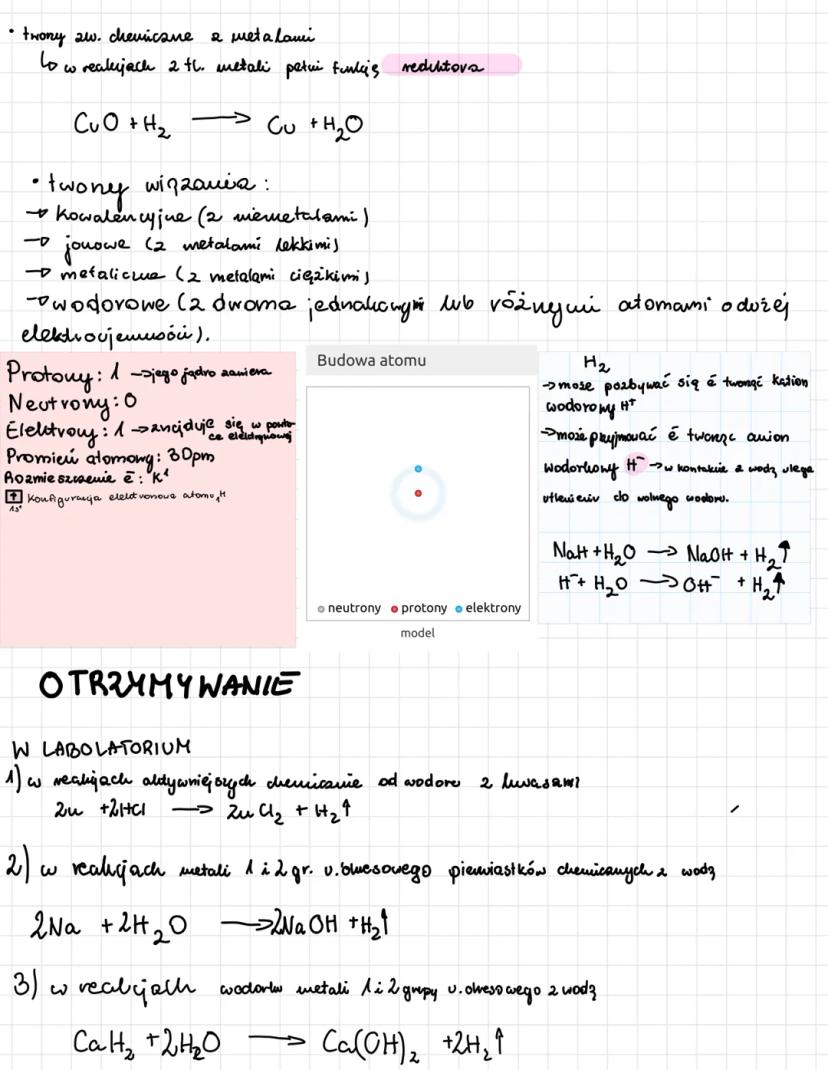 • tworzy zw. chemiczne z metalami
↳ w reakcjach z tl. metali pełni funkcję reduktora
CuO + H₂ → Cu + H₂O
• tworzy wiązania:
→ kowalencyjne (z niemetalami)
→ jonowe (z metalami lekkimi)
→ metaliczne (z metalami ciężkimi)
→ wodorowe (z dwoma jednakowymi lub różnymi atomami o dużej
elektroujemności).
Protony: 1 → jego jądro zawiera
Neutrony: 0
Elektrony: 1 → znajduje się w powło-
ce elektronowej
Promień atomowy: 30pm
Rozmieszczenie ē: K¹
↑ Konfiguracja elektronowa atomu ₁H
1s¹
Budowa atomu
neutrony protony elektrony
model
H₂
→ może pozbywać się ē tworząc kation
wodorowy H⁺
→ może przyjmować ē tworząc anion
wodorkowy H⁻ → w kontakcie z wodą ulega
utlenieniu do wolnego wodoru.
NaH + H₂O → NaOH + H₂↑
H⁻ + H₂O → OH⁻ + H₂↑
OTRZYMYWANIE
W LABOLATORIUM
1) w reakcjach aktywniejszych chemicznie od wodoru z kwasami
Zn + 2HCl → ZnCl₂ + H₂↑
2) w reakcjach metali 1 i 2 gr. u. okresowego pierwiastków chemicznych z wodą
2Na + 2H₂O → 2NaOH + H₂↑
3) w reakcjach wodorków metali 1 i 2 grupy u. okresowego z wodą
CaH₂ + 2H₂O → Ca(OH)₂ + 2H₂↑